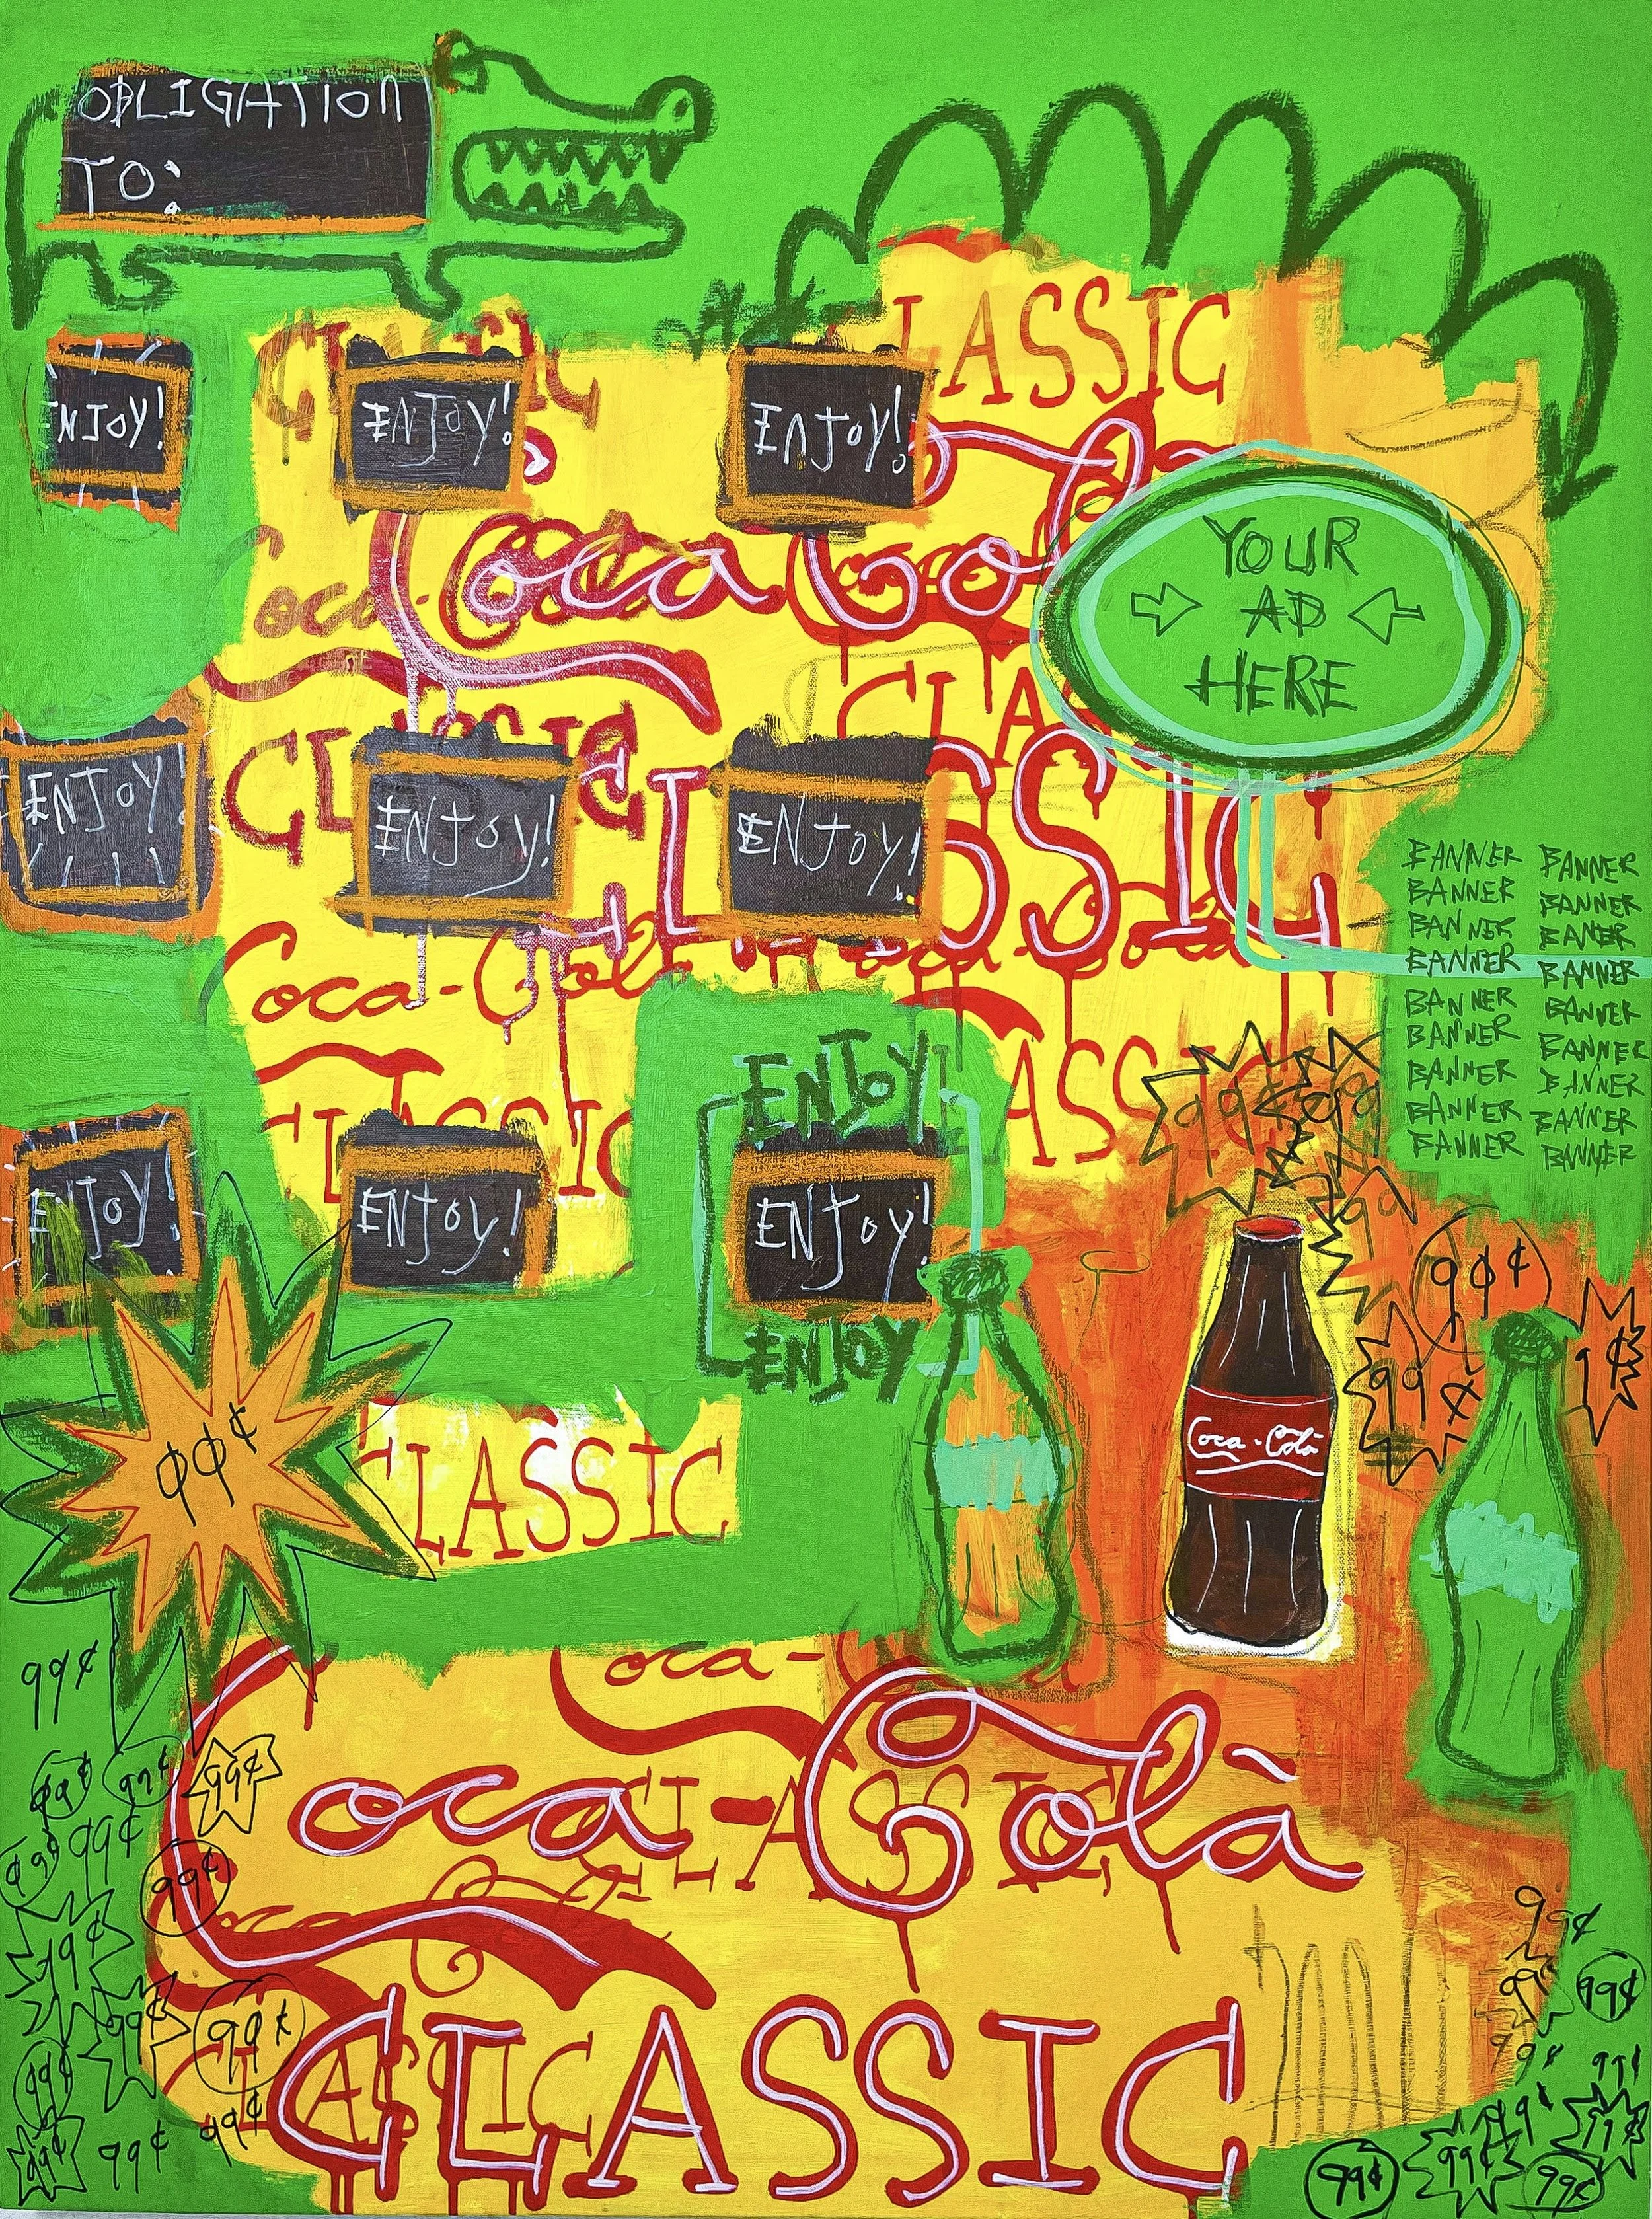 OBLIGATION
TO:
CLASSIC
LASSIC
ENJOY!
ENJOY!
ENJOY!
Coca-Cola
Coca Cola
YOUR
AD
HERE
CLAS
CLASSIC
CLASSIC
ENJOY!
ENJOY!
ENJOY!
BANNER BANNER
BANNER BANNER
BANNER BANER
BANNER BANNER
BANNER BANNER
BANNER BANNER
BANNER BANNER
BANNER BANNER
BANNER BANNER
Coca-Cola
Coca-Cola
CLASSIC
CLASSIC
ENJOY
99¢
99¢
ENJOY!
ENJOY!
ENJOY!
99¢
ENJOY
99¢
1¢
Coca-Cola
99¢
CLASSIC
99¢
Coca-
Coca-Colà
CLASSIC
99¢
99¢
99¢
99¢
99¢
99¢
99¢
99¢
99¢
99¢
CLASSIC
CLASSIC
99¢
99¢
99¢
99¢
99¢
99¢
99¢
99¢
99¢
99¢
99¢
99¢
99¢